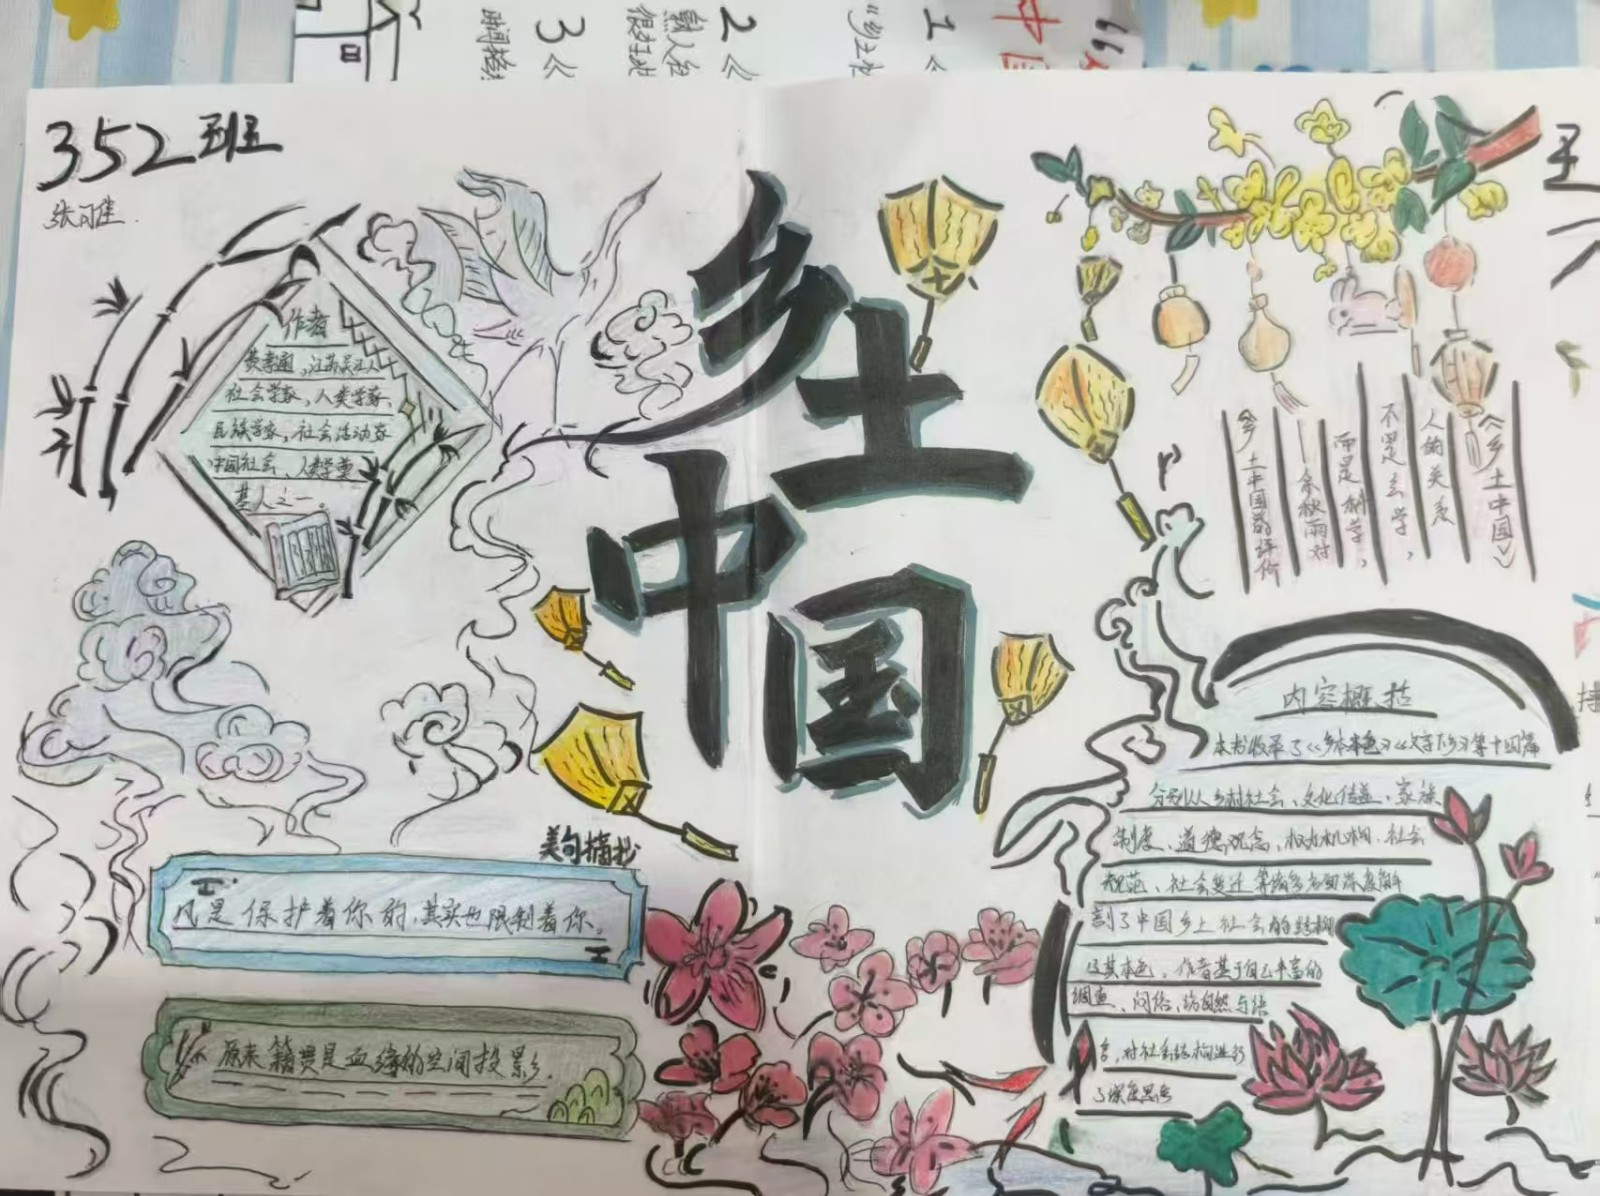 352班
张
乡土
中国
作者
费孝通，江苏吴江人
社会学家，人类学家、
民族学家，社会活动家
中国社会、人类学奠
基人之一。
《乡土中国》
人的关系
不是玄学，
而是科学，
—余秋雨对
乡土中国的评价
美句摘抄
凡是保护着你的，其实也限制着你。
原来籍贯是血缘的空间投影。
内容概括
本书收录了《乡土本色》《文字下乡》等十四篇
分别从乡村社会、文化传递、家族
制度、道德观念、权力机构、社会
规范、社会变迁等诸多方面深度解
剖了中国乡土社会的结构
及其本色，作者基于自己丰富的
调查、
言，对社会结构进行
了深度思考
1
2
3